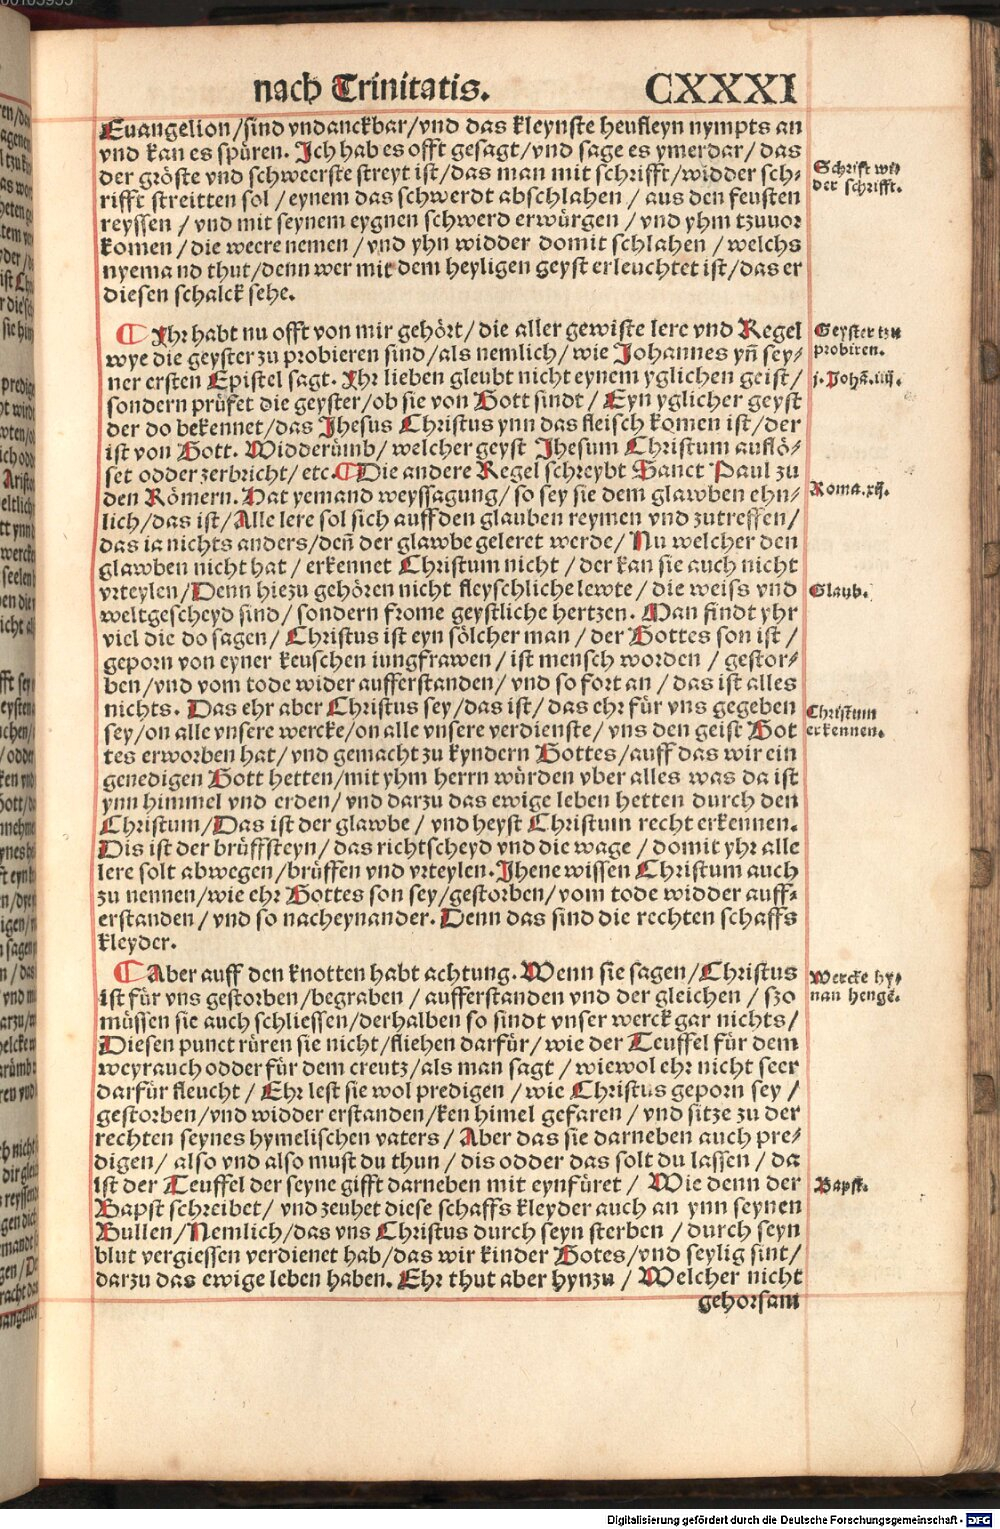 nach Trinitatis. CXXXI
Euangelion/sind vndanckbar/vnd das kleynste heufleyn nympts an
vnd kan es spüren. Ich hab es offt gesagt/vnd sage es ymerdar/das
der gröste vnd schweerste streyt ist/das man mit schrifft/widder sch⸗
rifft streitten sol/eynem das schwerdt abschlahen/aus den feusten
reyssen/vnd mit seynem eygnen schwerd erwürgen/vnd yhm tzuuor
komen/die weere nemen/vnd yhn widder domit schlahen/welchs
nyemand thut/denn wer mit dem heyligen geyst erleuchtet ist/das er
diesen schalck sehe.
Schrifft wid
der schrifft.
¶ Yhr habt nu offt von mir gehört/die aller gewiste lere vnd Regel
wye die geyster zu probieren sind/als nemlich/wie Johannes yñ sey⸗
ner ersten Epistel sagt. Yhr lieben gleubt nicht eynem yglichen geist/
sondern prüfet die geyster/ob sie von Gott sindt/Eyn yglicher geyst
der do bekennet/das Jhesus Christus ynn das fleisch komen ist/der
ist von Gott. Widderümb/welcher geyst Jhesum Christum auflö⸗
set odder zerbricht/etc. ¶ Die andere Regel schreybt Sanct Paul zu
den Römern. Hat yemand weyssagung/so sey sie dem glawben ehn⸗
lich/das ist/Alle lere sol sich auff den glauben reymen vnd zutreffen/
das ia nichts anders/deñ der glawbe geleret werde/Nu welcher den
glawben nicht hat/erkennet Christum nicht/der kan sie auch nicht
vrteylen/Denn hiezu gehören nicht fleyschliche lewte/die weiss vnd
weltgescheyd sind/sondern frome geystliche hertzen. Man findt yhr
viel die do sagen/Christus ist eyn sölcher man/der Gottes son ist/
geporn von eyner keuschen iungfrawen/ist mensch worden/gestor⸗
ben/vnd vom tode wider aufferstanden/vnd so fort an/das ist alles
nichts. Das ehr aber Christus sey/das ist/das ehr für vns gegeben
sey/on alle vnsere wercke/on alle vnsere verdienste/vns den geist Got
tes erworben hat/vnd gemacht zu kyndern Gottes/auff das wir ein
genedigen Gott hetten/mit yhm herrn würden vber alles was da ist
ynn himmel vnd erden/vnd darzu das ewige leben hetten durch den
Christum/Das ist der glawbe/vnd heyst Christum recht erkennen.
Dis ist der brüffsteyn/das richtscheyd vnd die wage/domit yhr alle
lere solt abwegen/brüffen vnd vrteylen. Jhene wissen Christum auch
zu nennen/wie ehr Gottes son sey/gestorben/vom tode widder auff⸗
erstanden/vnd so nacheynander. Denn das sind die rechten schaffs
kleyder.
Geyster tzu
probiren.
j. Johã. iiij.
Roma. xij.
Glaub.
Christum
erkennen.
¶ Aber auff den knotten habt achtung. Wenn sie sagen/Christus
ist für vns gestorben/begraben/aufferstanden vnd der gleichen/szo
müssen sie auch schliessen/derhalben so sindt vnser werck gar nichts/
Diesen punct rüren sie nicht/fliehen darfür/wie der Teuffel für dem
weyrauch odder für dem creutz/als man sagt/wiewol ehr nicht seer
darfür fleucht/Ehr lest sie wol predigen/wie Christus geporn sey/
gestorben/vnd widder erstanden/ken himel gefaren/vnd sitze zu der
rechten seynes hymelischen vaters/Aber das sie darneben auch pre⸗
digen/also vnd also must du thun/dis odder das solt du lassen/da
ist der Teuffel der seyne gifft darneben mit eynfüret/Wie denn der
Bapst schreibet/vnd zeuhet diese schaffs kleyder auch an ynn seynen
Bullen/Nemlich/das vns Christus durch seyn sterben/durch seyn
blut vergiessen verdienet hab/das wir kinder Gotes/vnd seylig sint/
darzu das ewige leben haben. Ehr thut aber hynzu/Welcher nicht
gehorsam
Wercke hy⸗
nan hengẽ.
Bapst.
Digitalisierung gefördert durch die Deutsche Forschungsgemeinschaft - DFG